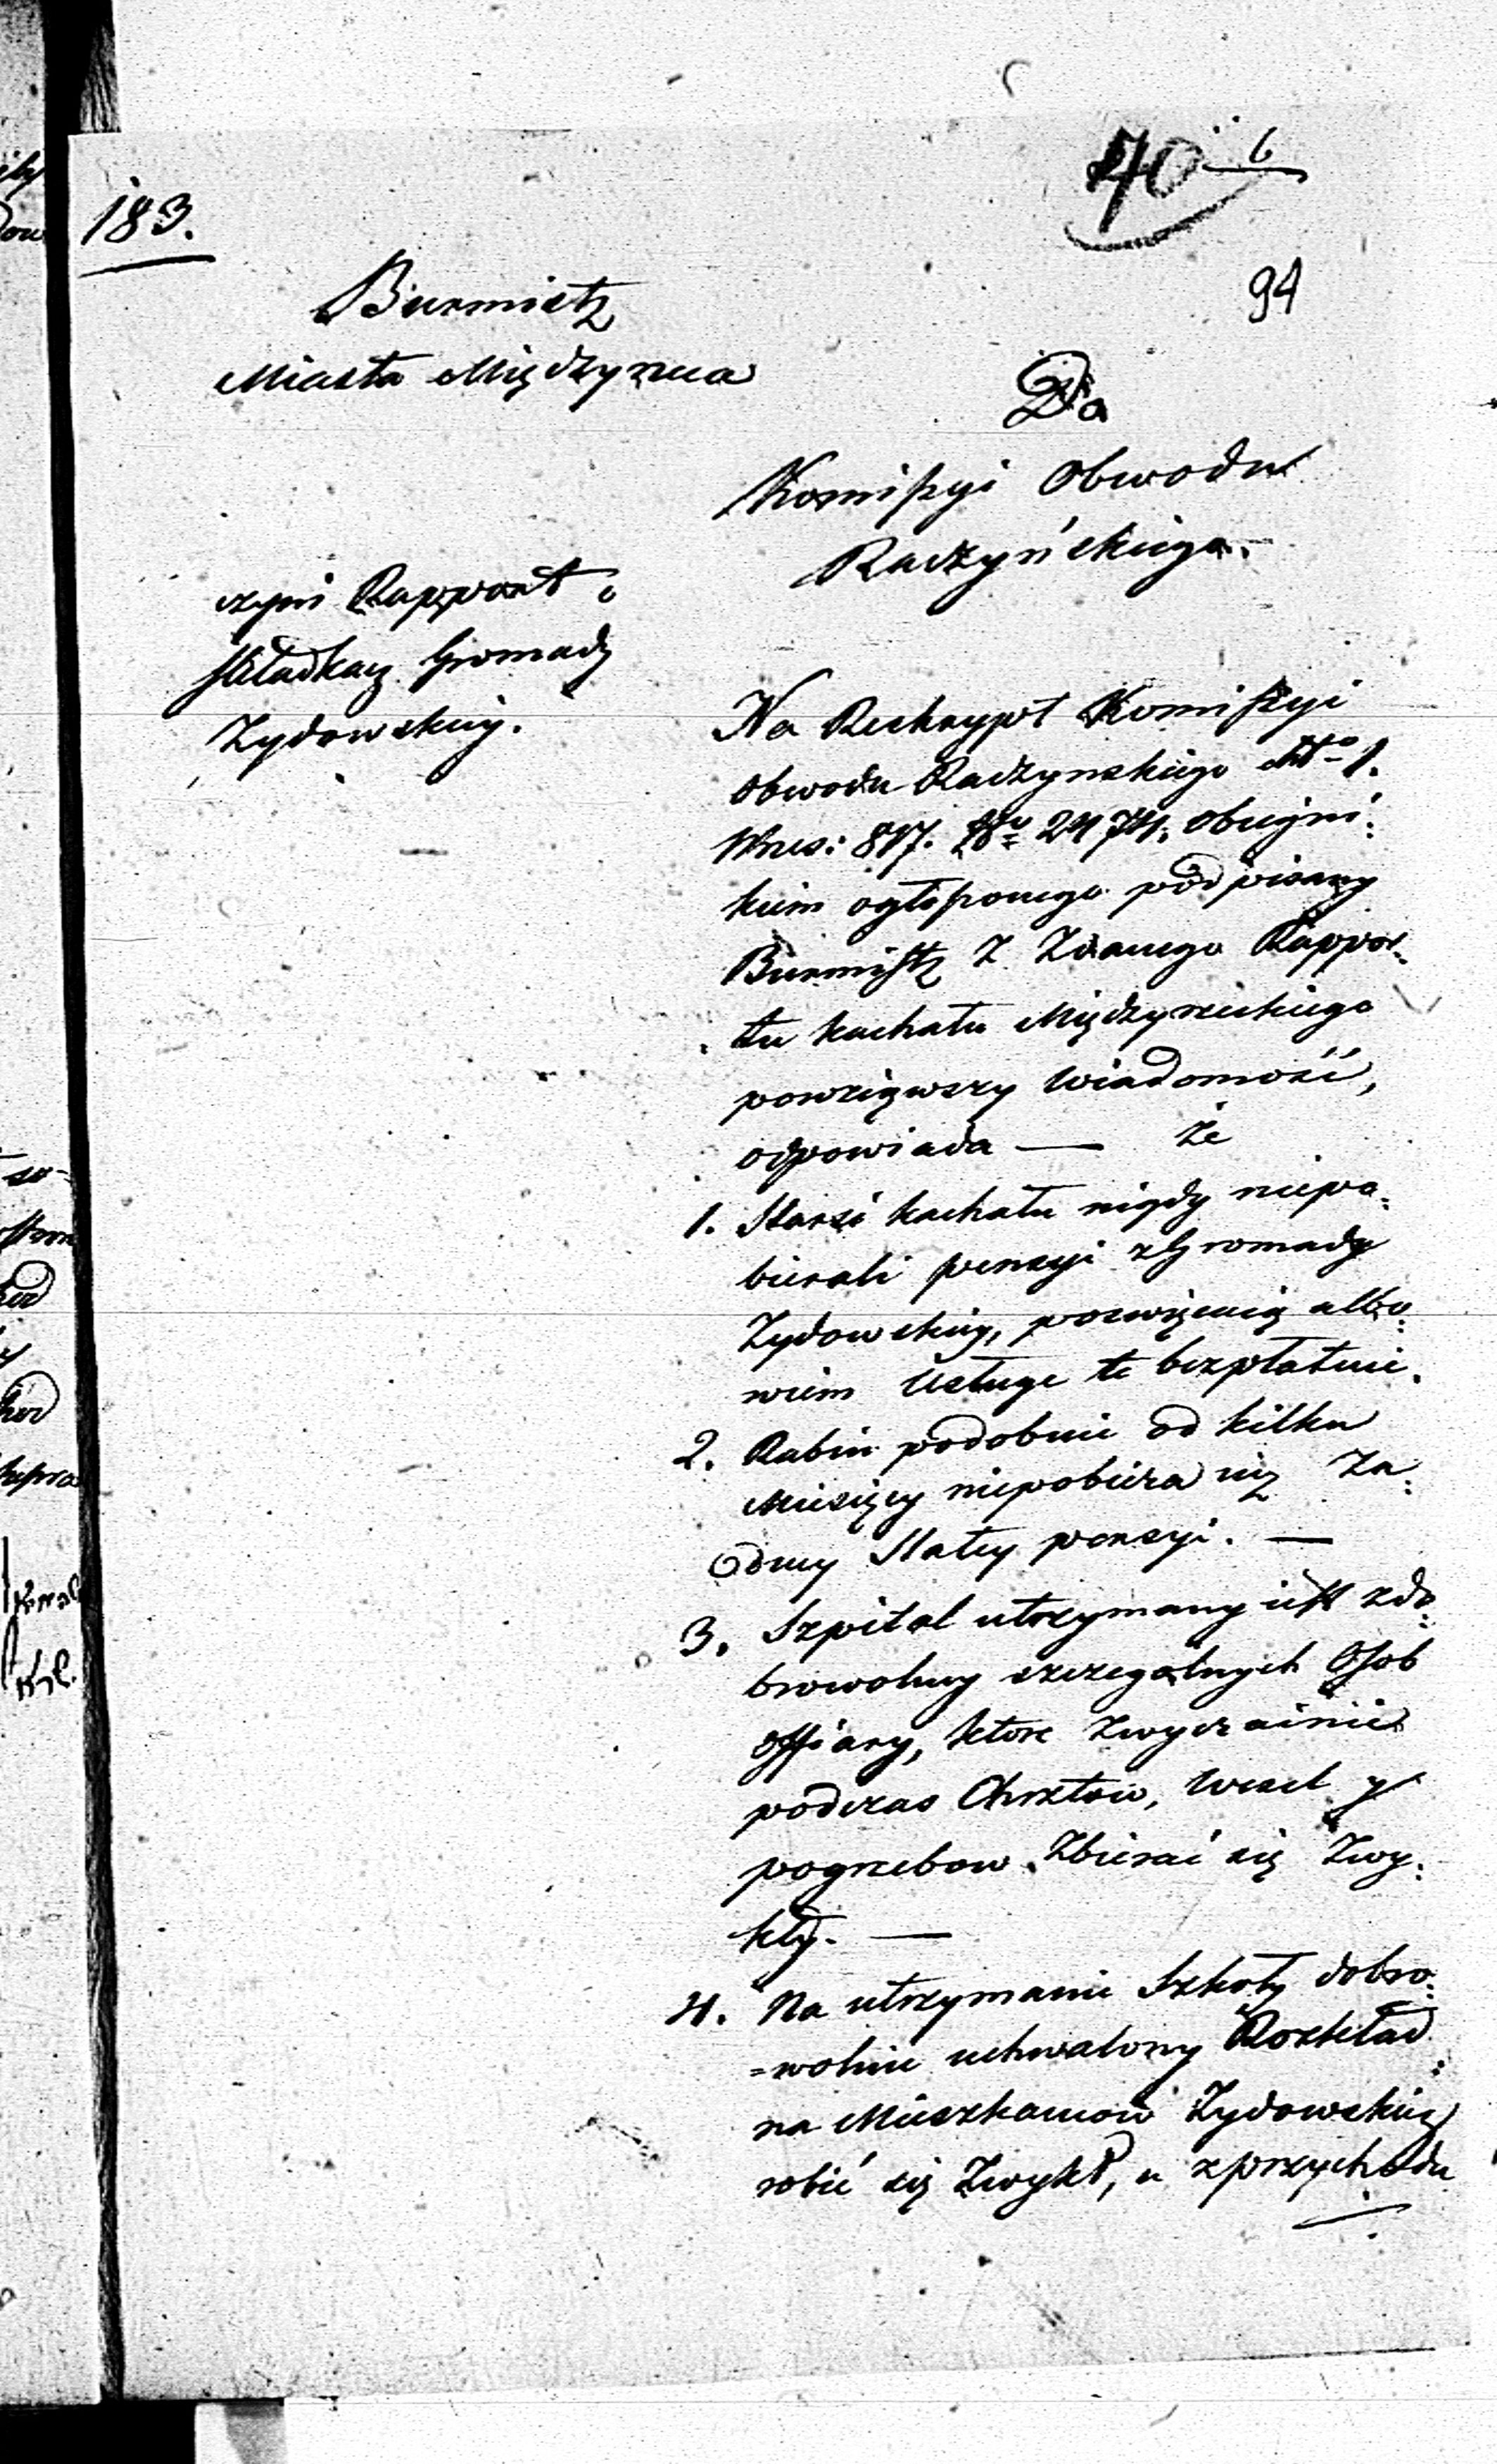 183.
40 6
94
Burmistz
Miasta Międzyrzca
Do
Komiſsyi Obwodu
Radzyńskiego.
czyni Rapport o
składkach Gromady
Zydowskiey.
Na Reskrypt Komiſsyi
Obwodu Radzynskiego dto 1.
Wrzes: 817. No 2474.
kiem ogłoſzonego podpisany
Burmistz z Zdanego Rappor:
tu kachału Międzyrzeckiego
powziąwszy Wiadomość,
odpowiada — że
1. Starsi kachału nigdy niepo:
bierali pensyi z Gromady
Zydowskiey, poswięcaią albo:
wiem Usługe te bezpłatnie.
2. Rabin podobnie od kilku
Miesięcy niepobiera iuż Ża:
dney Stałey pensyi. —
3. Szpital utrzymany iest z do:
browolney szczegolnych Osob
offiary, ktore zwyczainie
podczas Chrztow, Wesel y
pogrzebow Zbierać się Zwy:
kły. —
4. Na utrzymanie Szkoły dobro:
=wolnie uchwalony Rozkład
na Mieszkancow Zydowskich
robić się Zwykł, a z przychodu